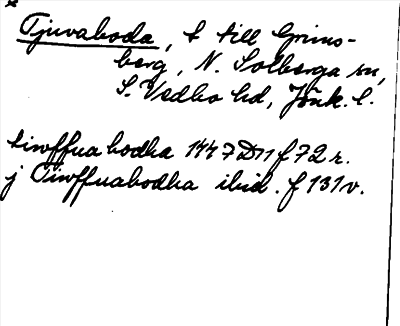 Tjuvaboda, t till Grims-
berg, N. Solberga sn,
S. Vedbo hd, Jönk. l.
tiwffua bodha 1447 D11 f 72 r.
j Tiwffuabodha ibid. f 131 v.